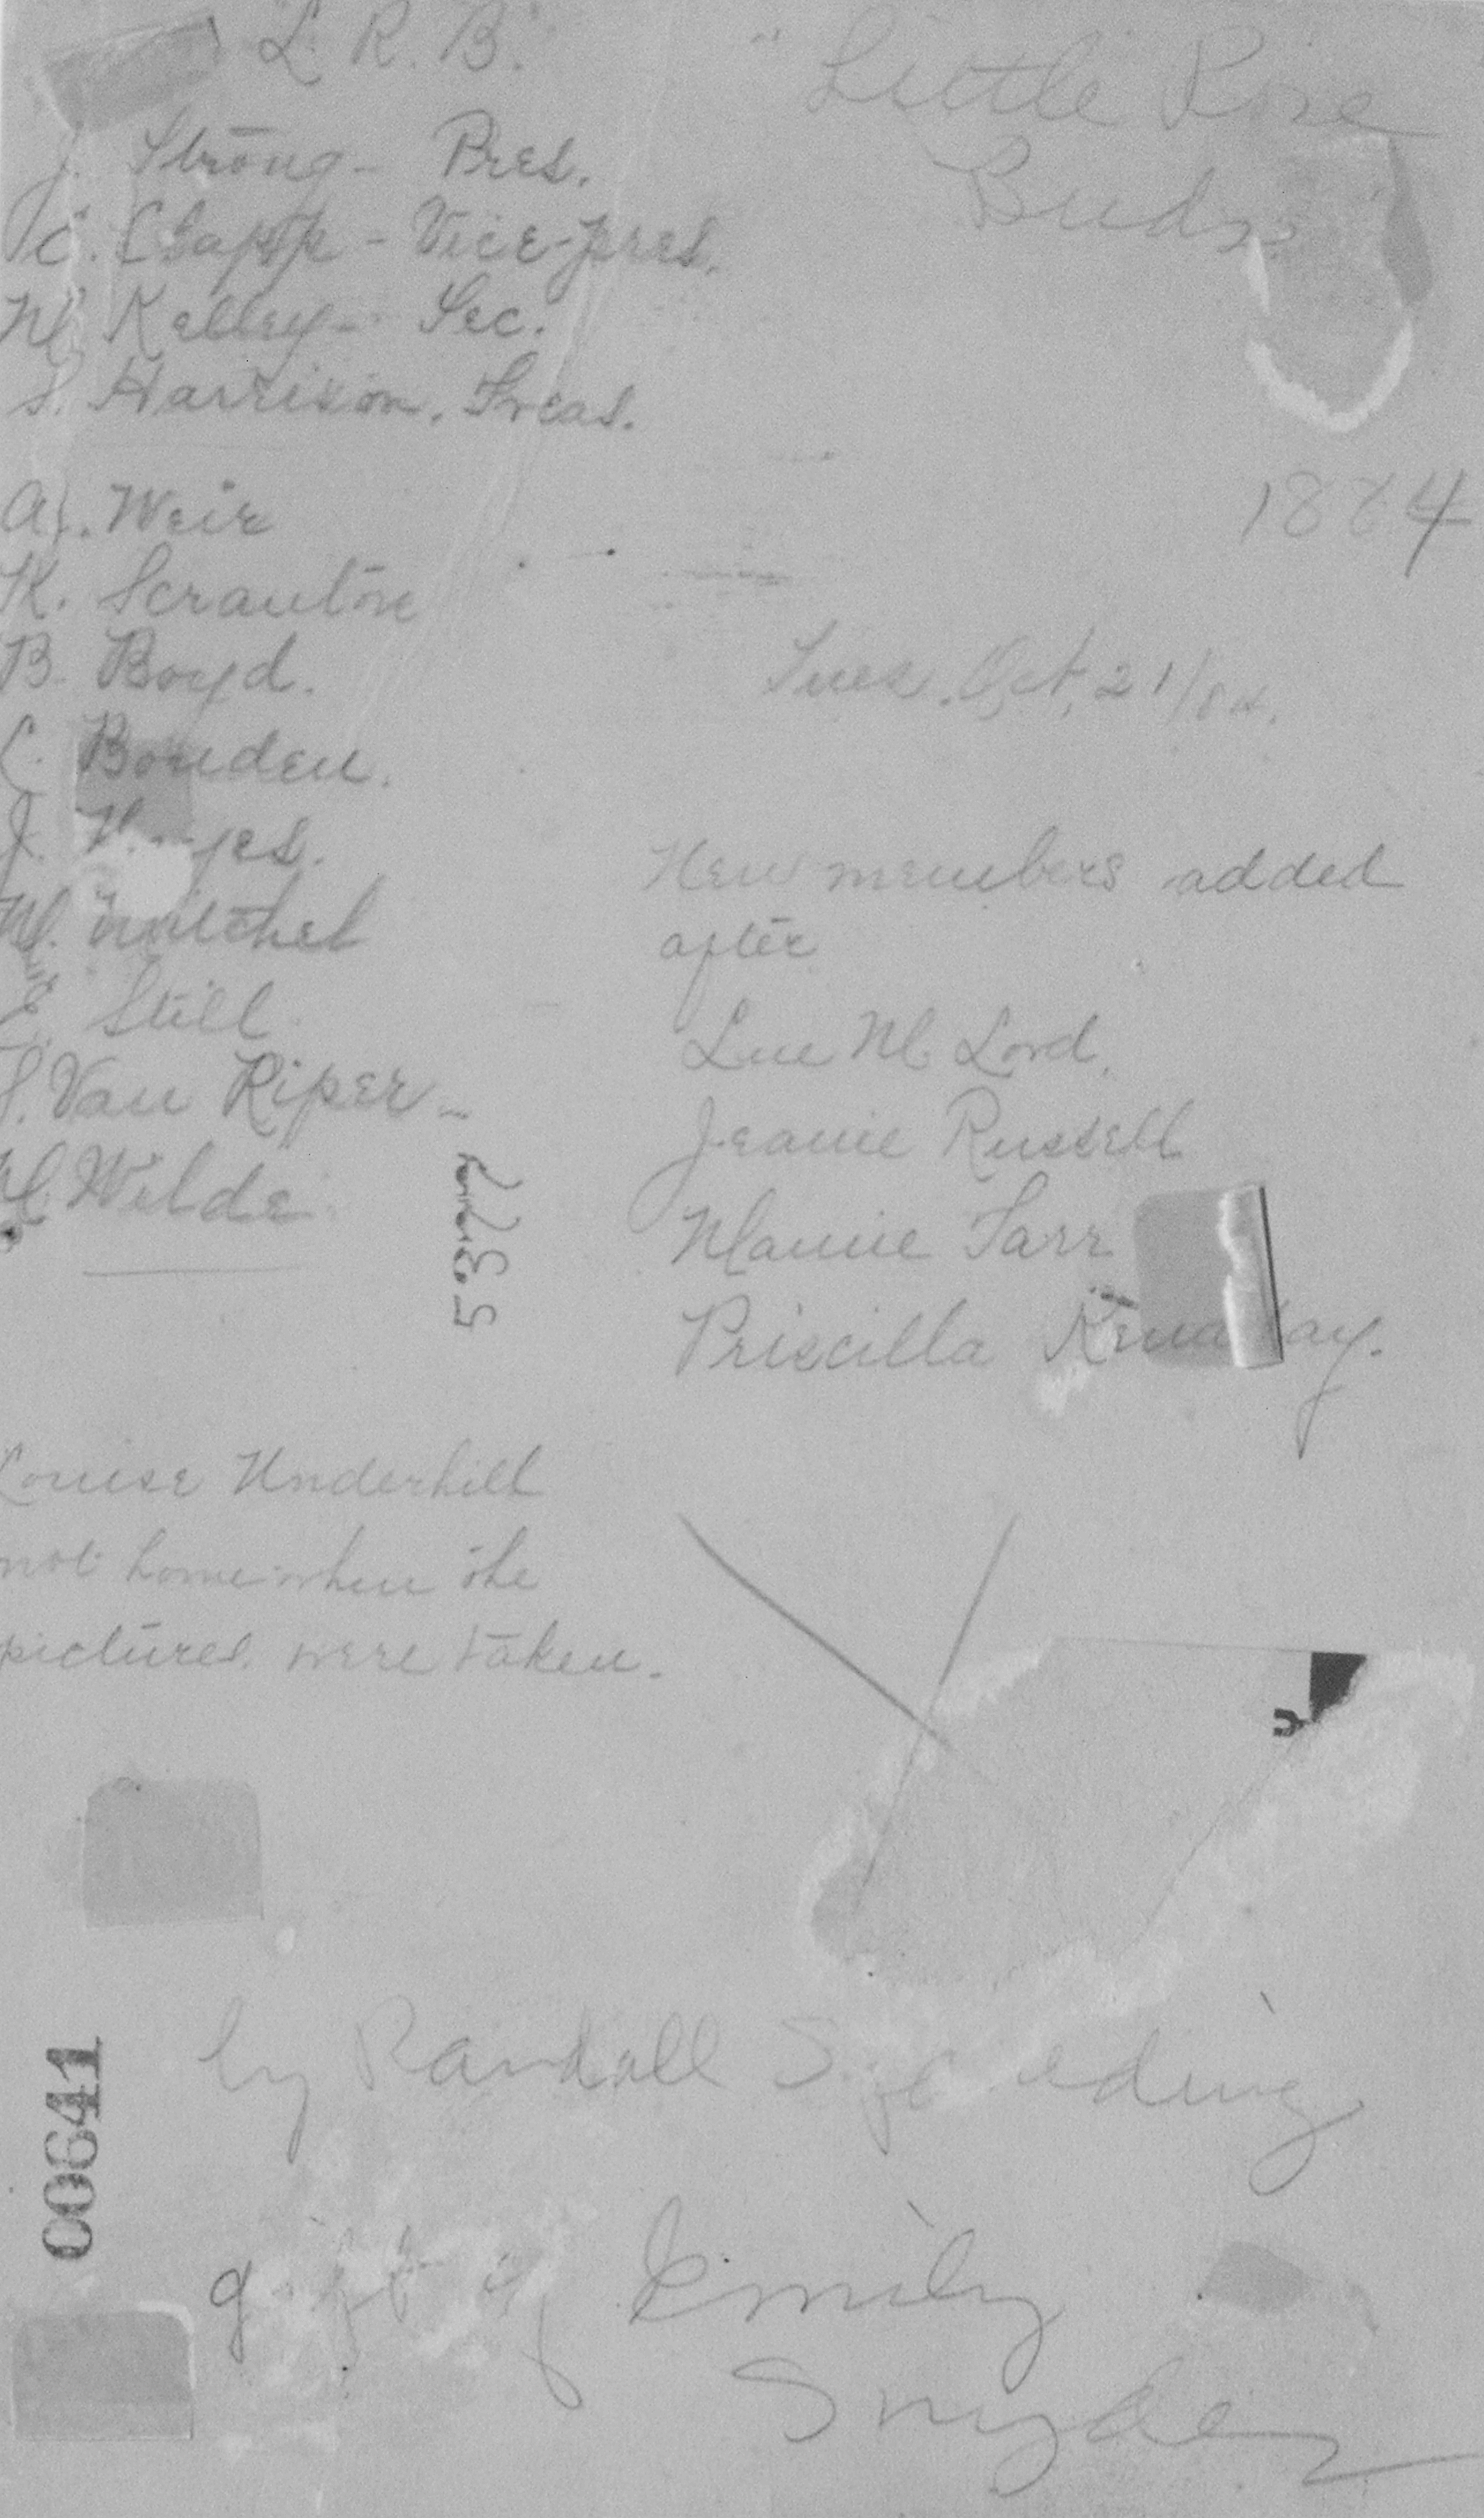 "L. R. B."
J. Strong - Pres.
C. Clapp - Vice-pres.
M. Kelley - Sec.
S. Harrison. Treas.
A. Weir
K. Scranton
B. Boyd.
C. Bowden.
J.
M. Mitchel
E. Still
S. Van Riper -
M. Wilde.
Louise Underhill
not home when the
pictures were taken.
"Little Rose
Buds"
1884
Tues. Oct, 21/84.
New members added
after
Lue M Lord.
Jeanie Russell
Mamie Tarr
Priscilla
5377
by Randall
gift of Emily
Snyder
00641